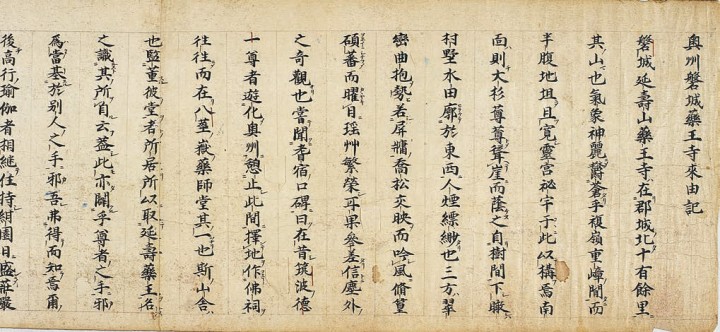 奥州磐城藥王寺來由記
磐城延壽山藥王寺在郡城北十有餘里
其山也氣象神麗欝蒼乎複嶺重嶂間而
半腹地坦且寛靈宮祕宇于此以構焉南
面則大杉蓴蓴聳崖而蔭之自樹間下瞰
村墅水由廓於東西人煙縹緲也三方翠
巒曲抱勢若屏牗喬松交映而吟風脩篁
碩蕃而曜目瑶艸繁榮耳果參差信塵外
之奇觀也甞聞耆宿口碑曰在昔筑波德
一尊者遊化奥州憩止此間擇地作佛祠
徃徃而在八莖嶽藥師堂其一也斯山舎
也監董彼堂者所居所以取延壽藥王名
之識其所自云蓋此亦闢乎尊者之手邪
為當基於别人之手邪吾弗得而知焉爾
後高行瑜伽者相繼住持紺園日盛莊嚴